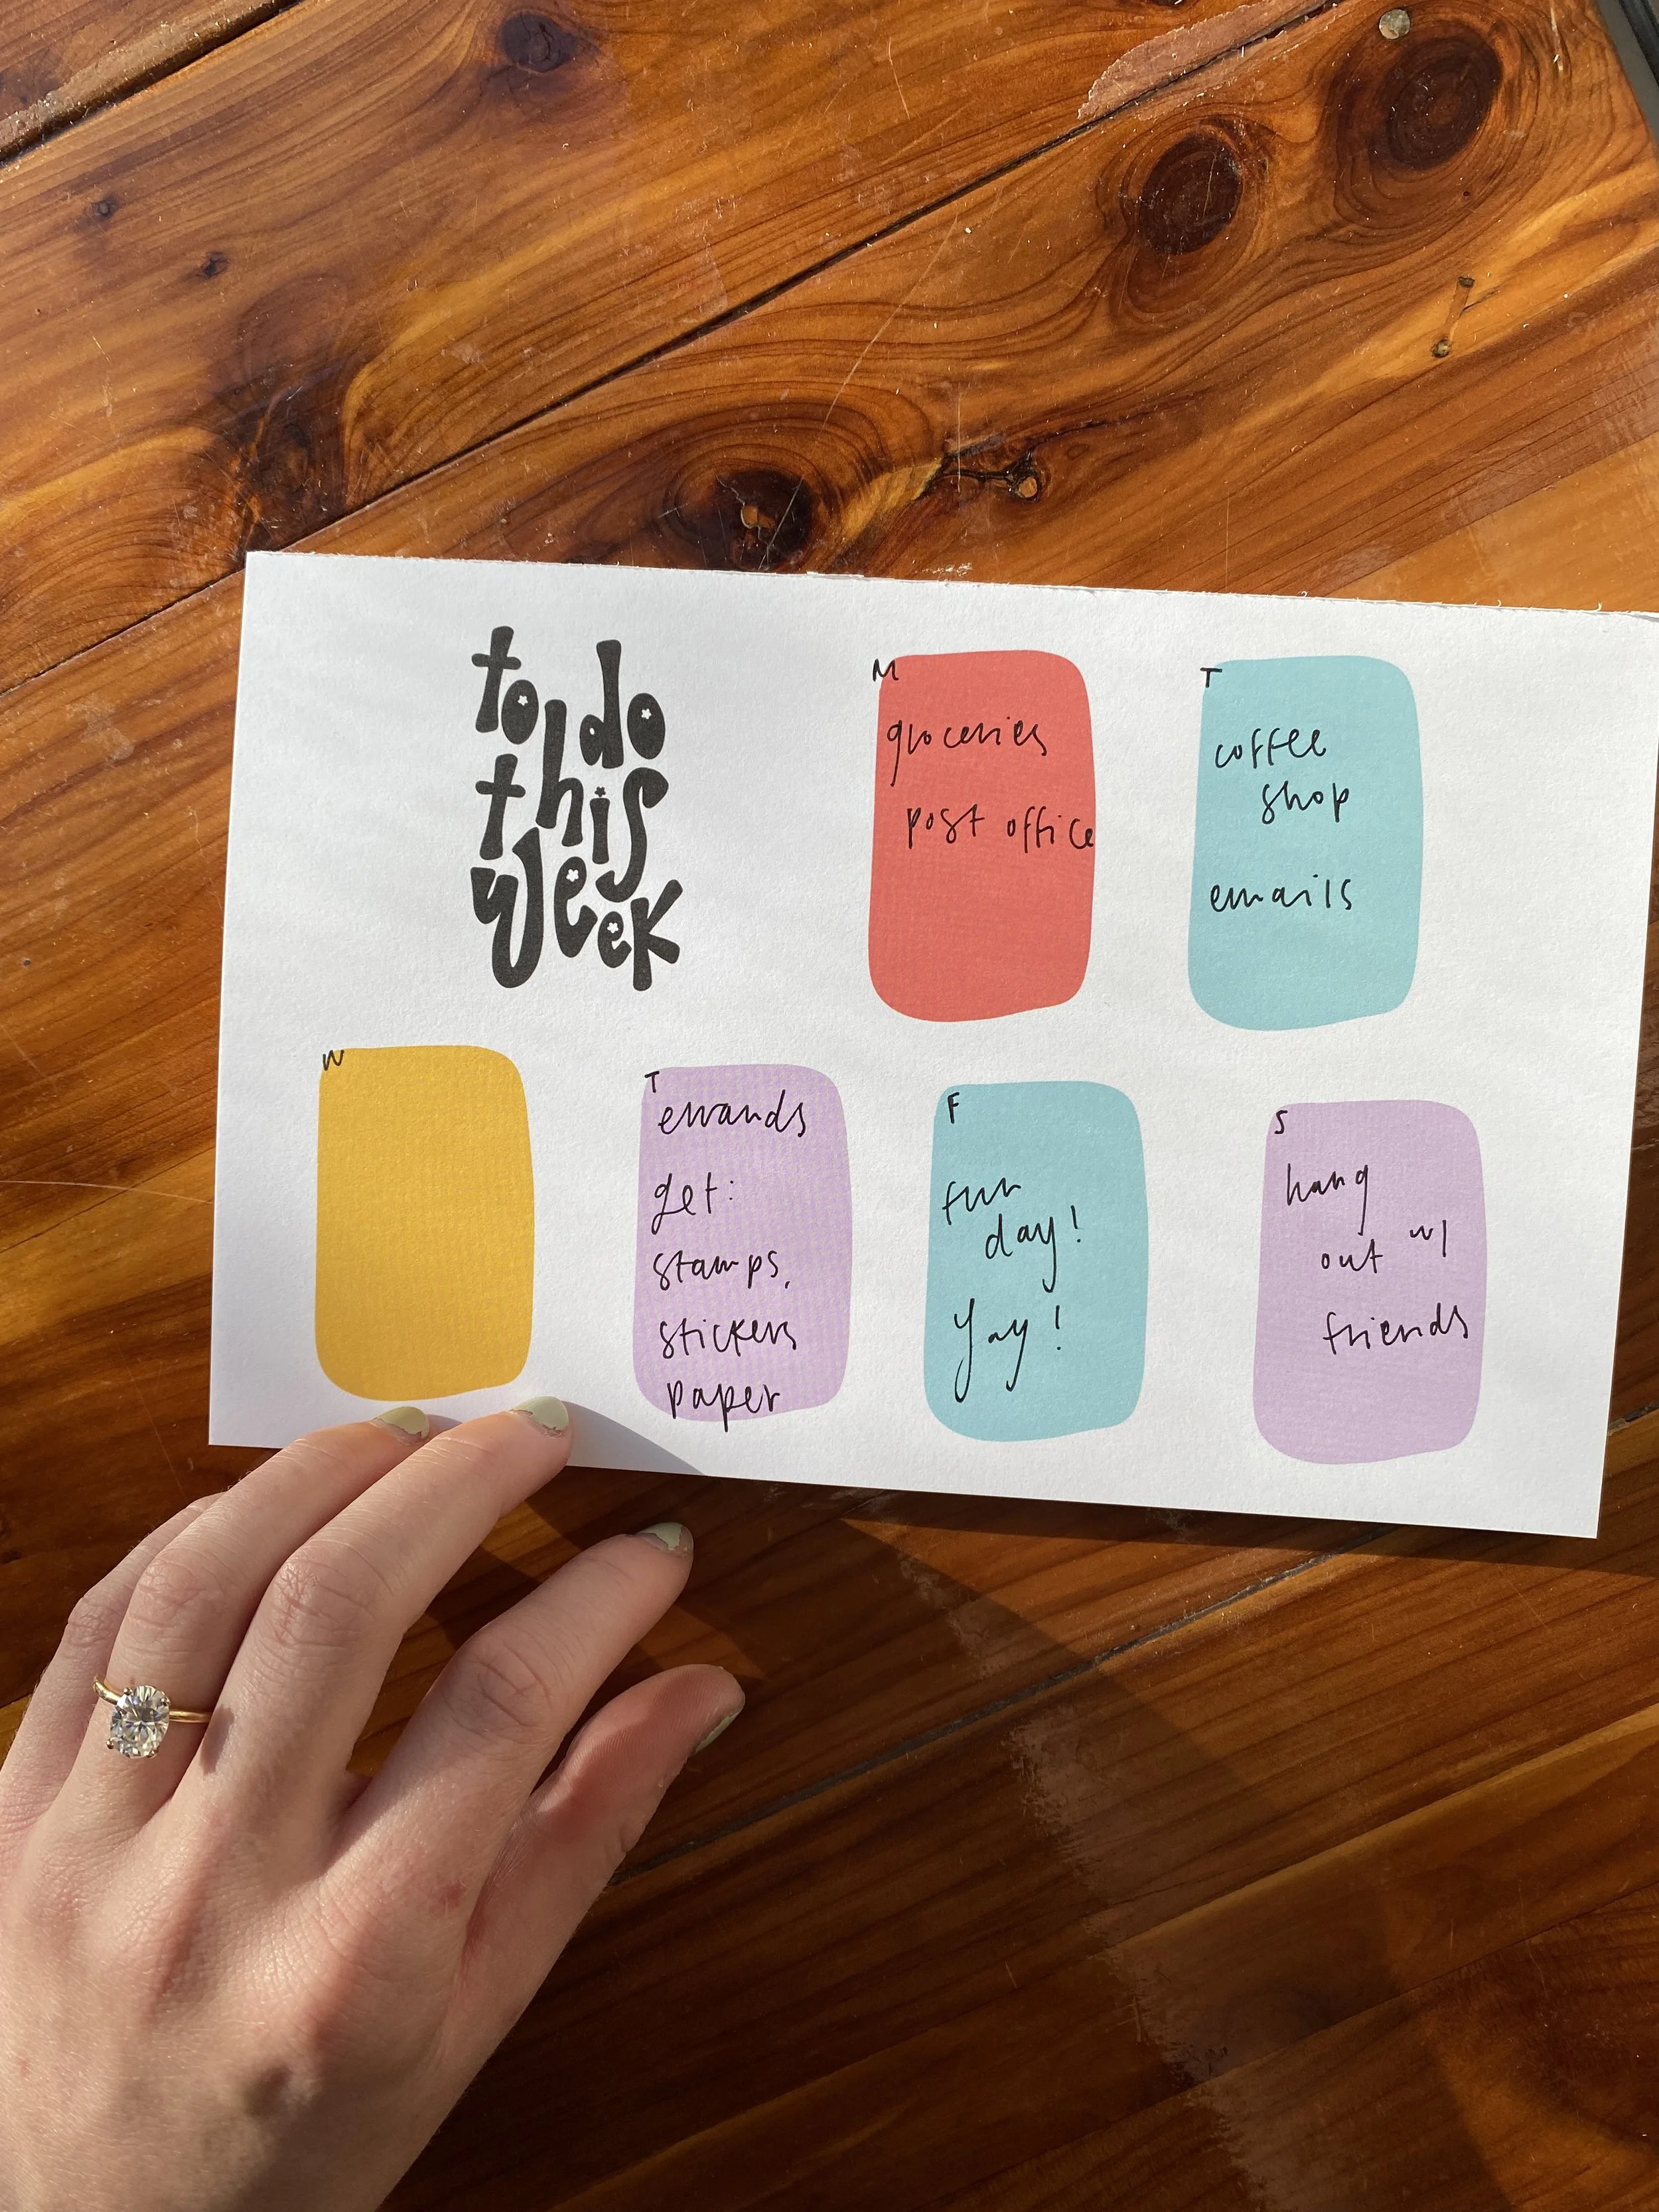 to do
this
week
M
groceries
post office
T
coffee
shop
emails
W
T
errands
get:
stamps,
stickers
paper
F
fun
day!
Yay!
S
hang
out w/
friends